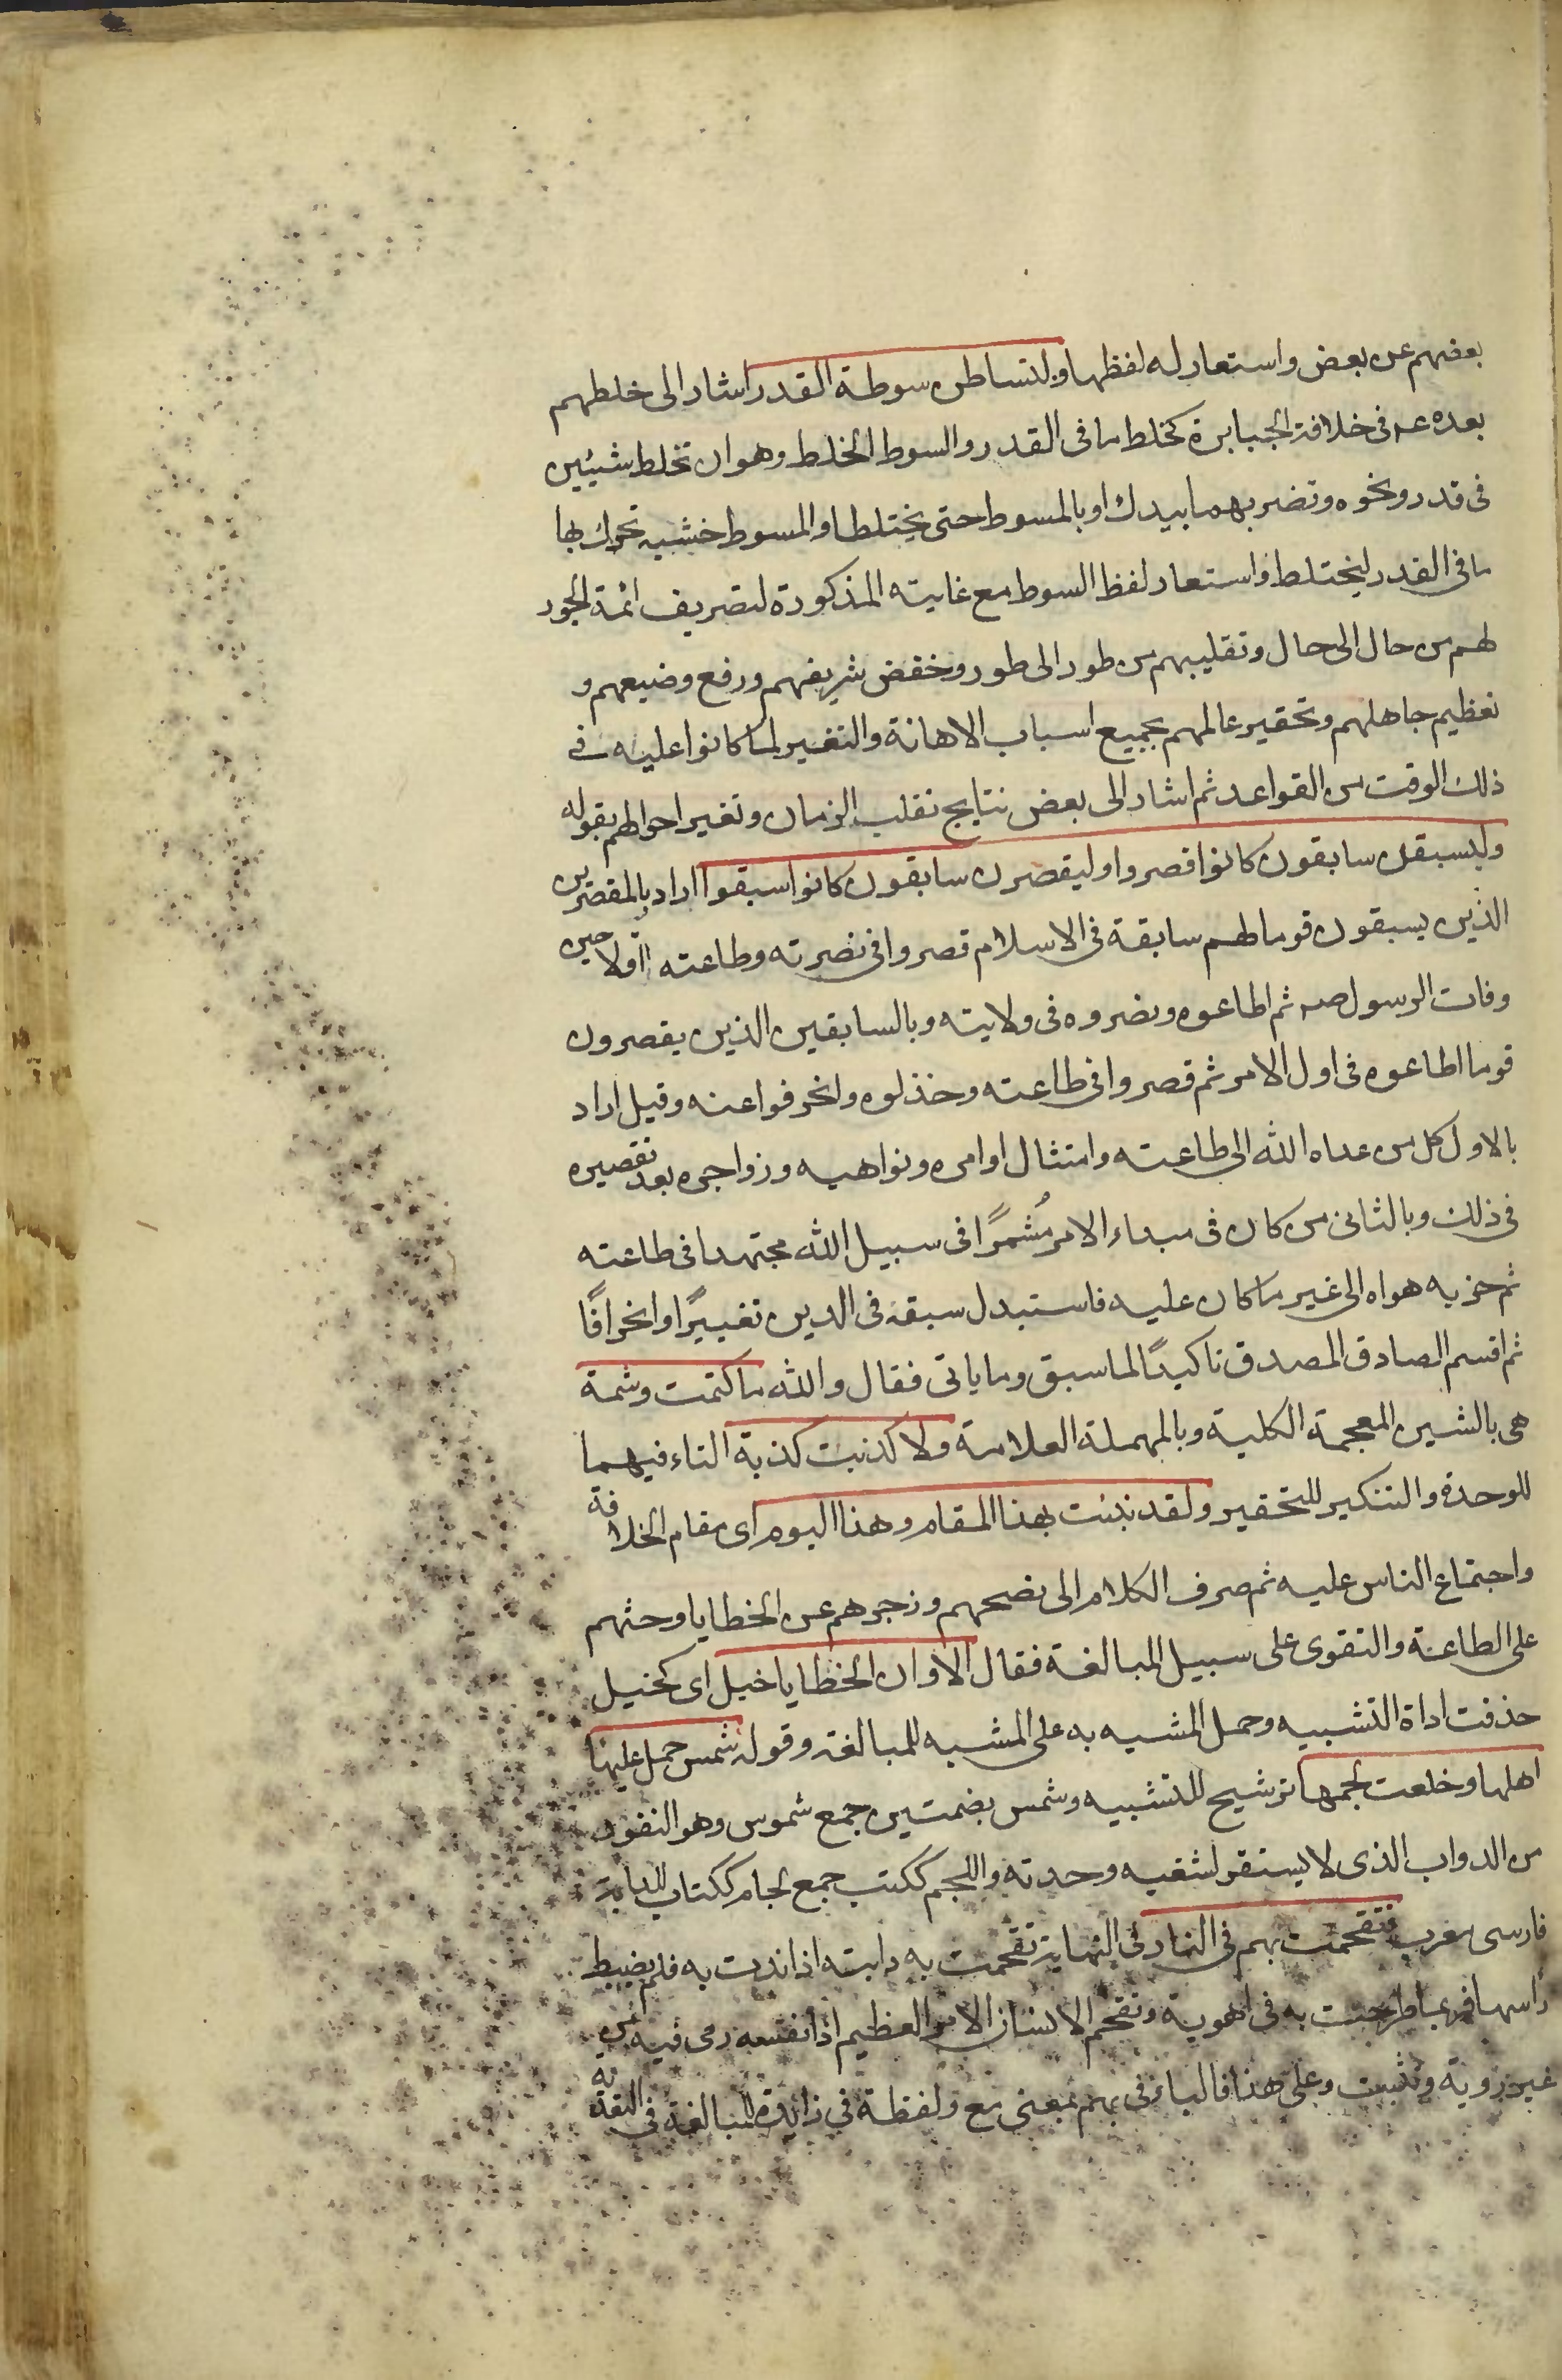 بعضهم عن بعض واستعار له لفظها ولتساطن سوطة القدر اشار الى خلطهم
بعده عـ فى خلافة الجبابرة كخلط ما فى القدر والسوط الخلط وهو ان تخلط شيئين
فى قدر ونحوه وتضربهما بيدك او بالمسوط حتى يختلطا والمسوط خشبه تحرك بها
ما فى القدر ليختلط واستعار لفظ السوط مع غايته المذكورة لتصريف ائمة الجور
لهم من حال الى حال وتقليبهم من طور الى طور وخفض شريفهم ورفع وضيعهم و
تعظيم جاهلهم وتحقير عالمهم بجميع اسباب الاهانة والتغيير لما كانوا عليه فى
ذلك الوقت من القواعد ثم اشار الى بعض نتايج تقلب الزمان وتغير احوالهم بقوله
وليسبقن سابقون كانوا قصروا وليقصرن سابقون كانوا سبقوا اراد بالمقصرين
الذين يسبقون قوما لهم سابقة فى الاسلام قصروا فى نصرته وطاعته اولا حين
وفات الرسول صـ ثم اطاعوه ونصروه فى ولايته وبالسابقين الذين يقصرون
قوما اطاعوه فى اول الامر ثم قصروا فى طاعته وخذلوه وانحرفوا عنه وقيل اراد
بالاول كل من عداه الله الى طاعته وامتثال اوامره ونواهيه وزواجره بعد تقصيره
فى ذلك وبالثانى من كان فى مبداء الامر مُشمرًا فى سبيل الله مجتهدا فى طاعته
ثم حز به هواه الى غير ما كان عليه فاستبدل سبقه فى الدين تغييرًا وانحرافًا
ثم اقسم الصادق المصدق تاكيدًا لما سبق وما ياتى فقال والله ما كتمت وشمة
هى بالشين المعجمة الكلية وبالمهملة العلامة ولا كذبت كذبة التاء فيهما
للوحدة والتنكير للتحقير ولقد نبئت بهذا المقام وهذا اليوم اى مقام الخلافة
واجتماع الناس عليه ثم صرف الكلام الى نصحهم وزجرهم عن الخطايا وحثهم
على الطاعة والتقوى على سبيل المبالغة فقال الا وان الخطايا خيل اى كخيل
حذفت اداة التشبيه وحمل المشبه به على المشبه للمبالغة وقوله شمس حمل عليها
اهلها وخلعت لجمها ترشيح للتشبيه وشمس بضمتين جمع شموس وهو النفور
من الدواب الذى لا يستقر لشغبه وحدته واللجم ككتب جمع لجام ككتاب للدابة
فارسى معرب فتقحمت بهم فى النار فى النهاية تقحمت به دابته اذا ندت به فلم يضبط
راسها فربما طرحت به فى اهوية وتقحم الانسان الامر العظيم اذا نفسه رمى فيه من
غير روية وتثبت وعلى هذا فالباء فى بهم بمعنى مع ولفظة فى زايدة للمبالغة فى التعدية